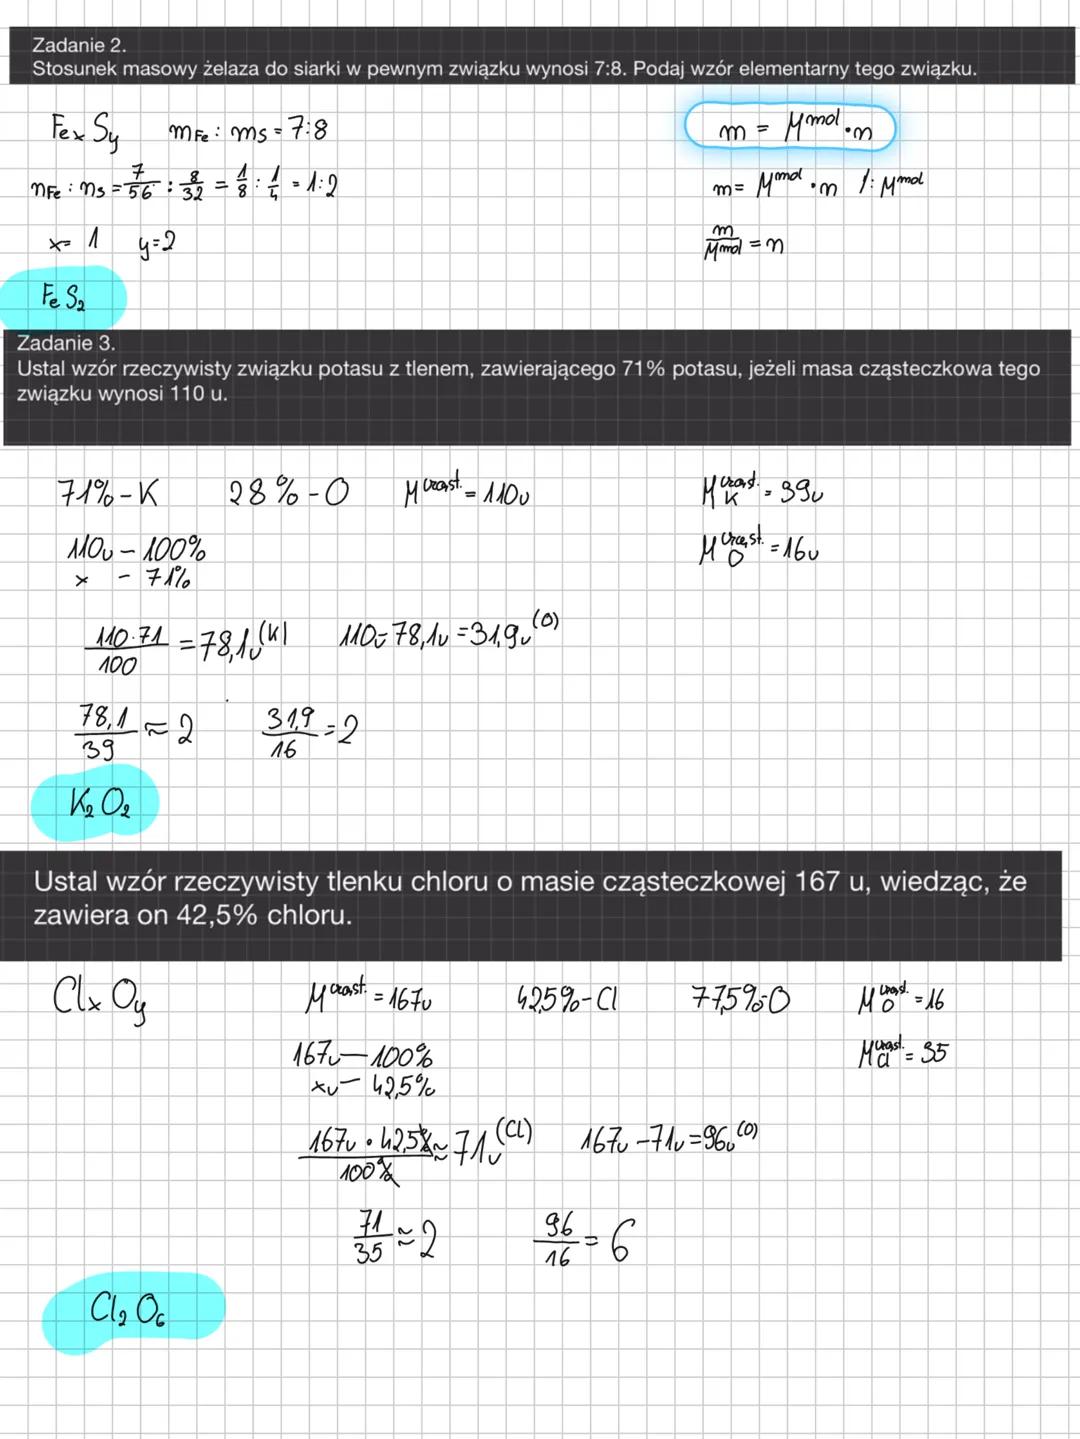 Zadanie 2.
Stosunek masowy żelaza do siarki w pewnym związku wynosi 7:8. Podaj wzór elementarny tego związku.
FexSy mFe : ms = 7:8
m = Mmol · n
nFe : ns = 7/56 : 8/32 = 1/8 : 1/4 = 1:2
m = Mmol · n /: Mmol
x = 1 y = 2
m/Mmol = n
FeS2
Zadanie 3.
Ustal wzór rzeczywisty związku potasu z tlenem, zawierającego 71% potasu, jeżeli masa cząsteczkowa tego
związku wynosi 110 u.
71% - K 28% - O Mcząst. = 110u MKcząst. = 39u
110u - 100% MOcząst. = 16u
x - 71%
110·71/100 = 78,1u (K) 110 - 78,1u = 31,9u (O)
78,1/39 ≈ 2 31,9/16 = 2
K2O2
Ustal wzór rzeczywisty tlenku chloru o masie cząsteczkowej 167 u, wiedząc, że
zawiera on 42,5% chloru.
ClxOy Mcząst. = 167u 42,5% - Cl 77,5% - O MOcząst. = 16
167u - 100% MClcząst. = 35
xu - 42,5%
167u · 42,5%/100% ≈ 71u (Cl) 167u - 71u = 96u (O)
71/35 ≈ 2 96/16 = 6
Cl2O6